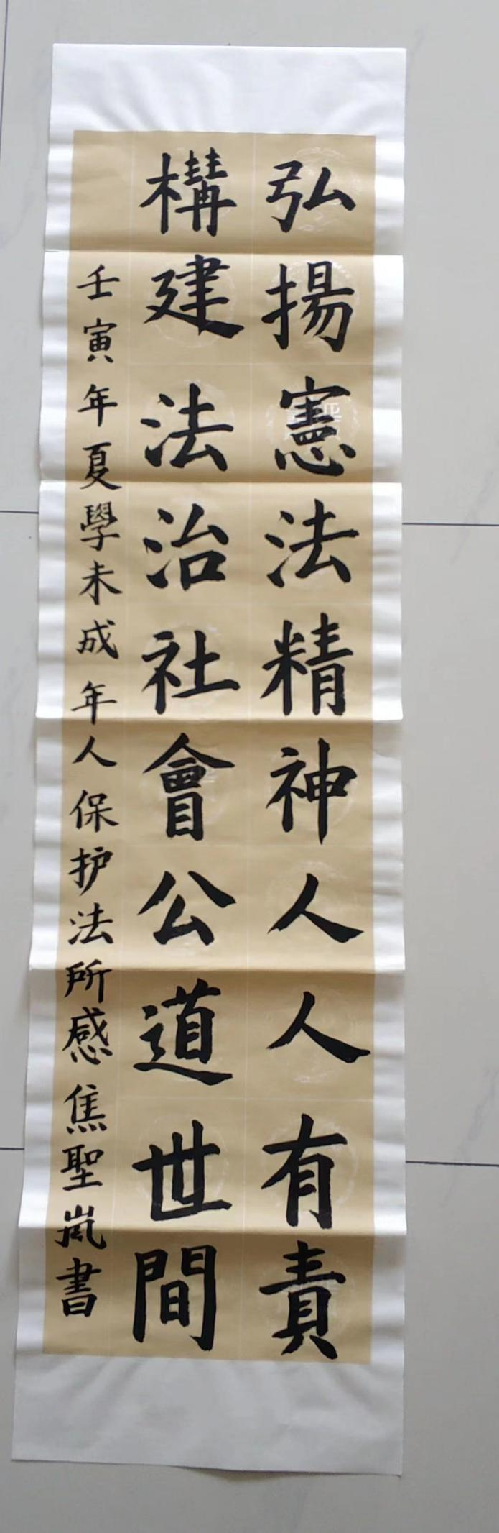 弘揚憲法精神人人有責
構建法治社會公道世間
壬寅年夏學未成年人保护法所感焦聖岚書